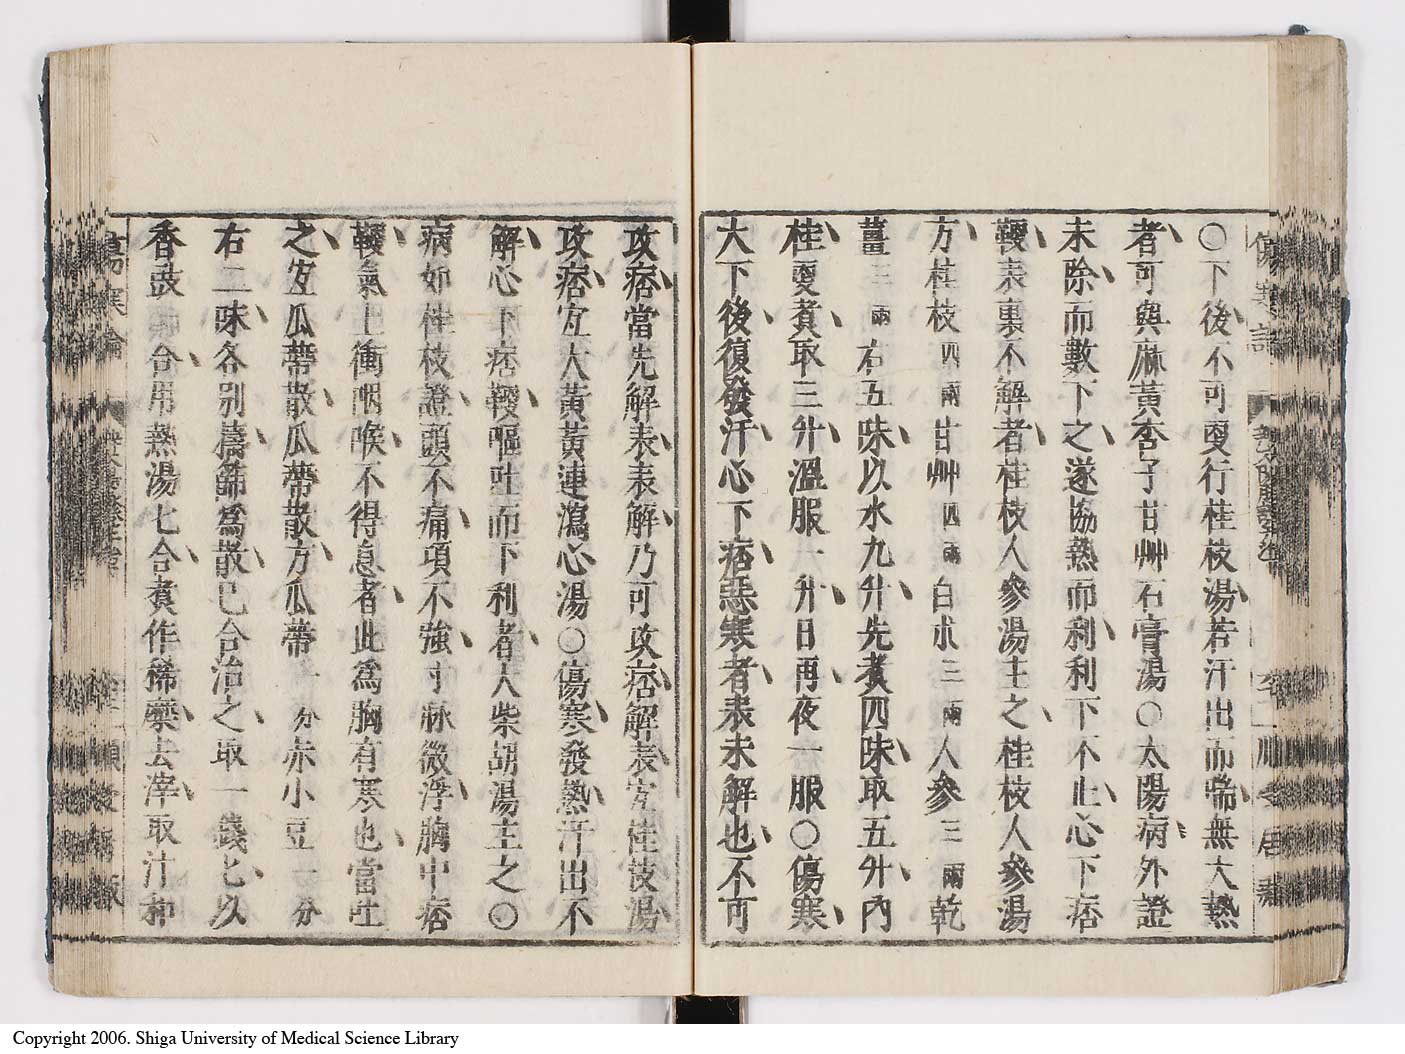 〇下後不可更行桂枝湯若汗出而喘無大熱
者可與麻黃杏子甘艸石膏湯〇太陽病外證
未除而數下之遂協熱而利利下不止心下痞
鞕表裏不解者桂枝人參湯主之桂枝人參湯
方桂枝四兩甘艸四兩白朮三兩人參三兩乾
薑三兩右五味以水九升先煑四味取五升內
桂更煑取三升溫服一升日再夜一服〇傷寒
大下後復發汗心下痞惡寒者表未解也不可
攻痞當先解表表解乃可攻痞解表宜桂枝湯
攻痞宜大黃黃連瀉心湯〇傷寒發熱汗出不
解心下痞鞕嘔吐而下利者大柴胡湯主之〇
病如桂枝證頭不痛項不強寸脉微浮胸中痞
鞕氣上衝咽喉不得息者此爲胸有寒也當吐
之宜瓜蒂散瓜蒂散方瓜蒂一分赤小豆一分
右二味各別擣篩爲散已合治之取一錢匕以
香豉一合用熱湯七合煑作稀糜去滓取汁和
傷寒論
Copyright 2006. Shiga University of Medical Science Library